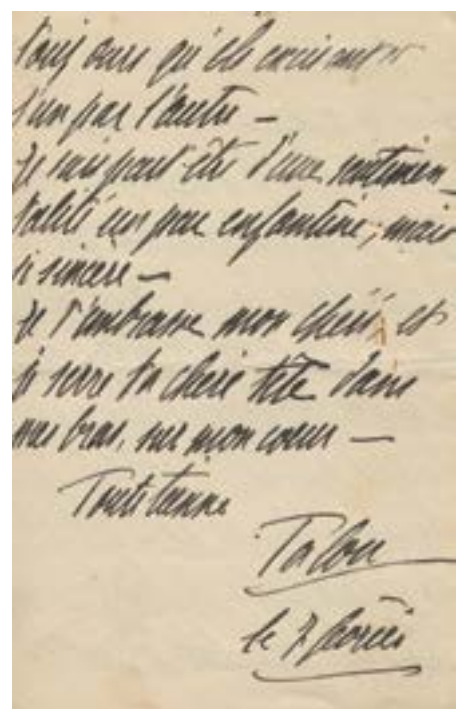 toujours qu'ils
l'un par l'autre –
Je suis peut être d'une sentimen-
talité un peu enfantine, mais
si sincère –
Je t'embrasse mon chéri, et
je serre ta chère tête dans
mes bras, sur mon coeur –
Toute tienne
Ta Lou
le 7 février